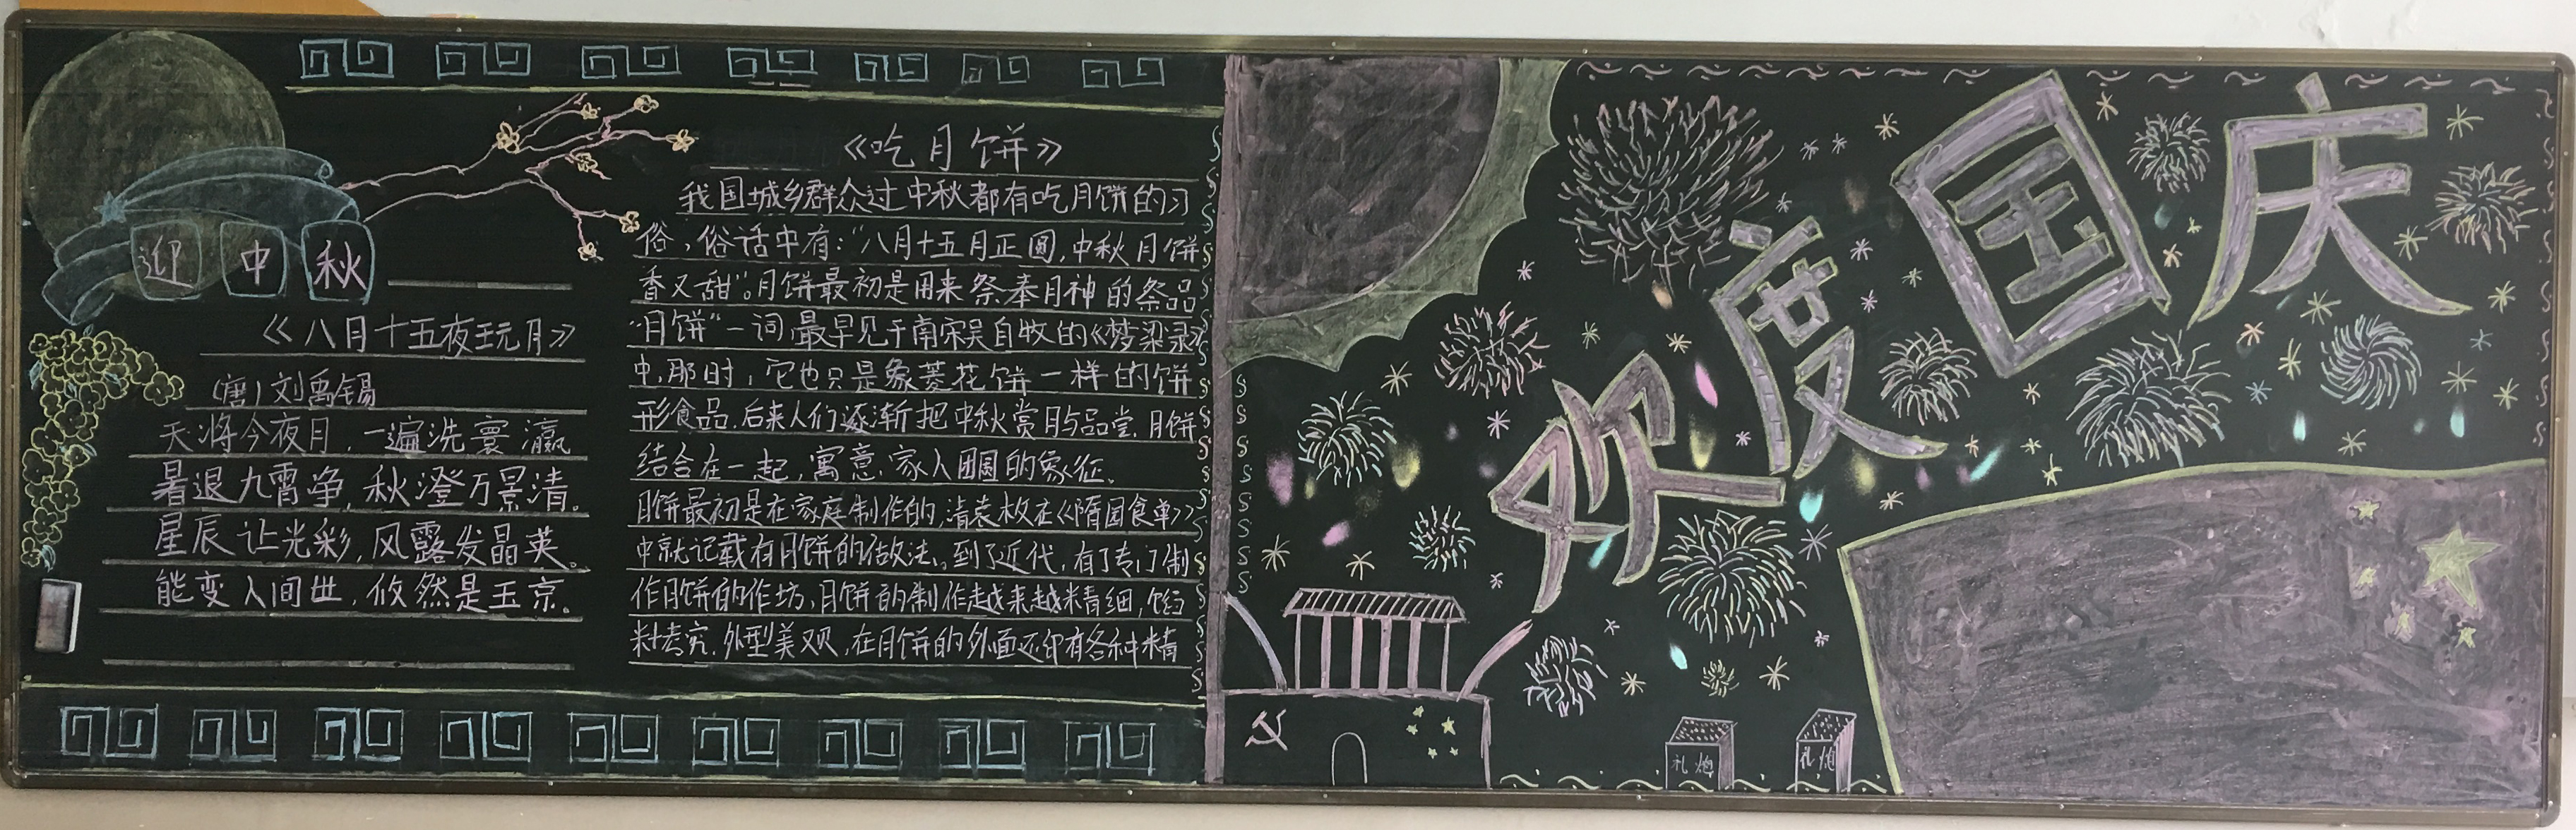 迎中秋
《八月十五夜玩月》
(唐)刘禹锡
天将今夜月,一遍洗寰瀛
暑退九霄净,秋澄万景清。
星辰让光彩,风露发晶英。
能变人间世,攸然是玉京。
《吃月饼》
我国城乡群众过中秋都有吃月饼的习
俗,俗话中有:“八月十五月正圆,中秋月饼
香又甜”。月饼最初是用来祭奉月神的祭品
“月饼”一词,最早见于南宋吴自牧的《梦梁录》
中,那时,它也只是象菱花饼一样的饼
形食品.后来人们逐渐把中秋赏月与品尝月饼
结合在一起,寓意家人团圆的象征.
月饼最初是在家庭制作的,清袁枚在《隋园食单》
中就记载有月饼的做法。到了近代,有了专门制
作月饼的作坊,月饼的制作越来越精细,馅
料考究,外型美观,在月饼的外面还印有各种精
欢度国庆
礼炮
礼炮